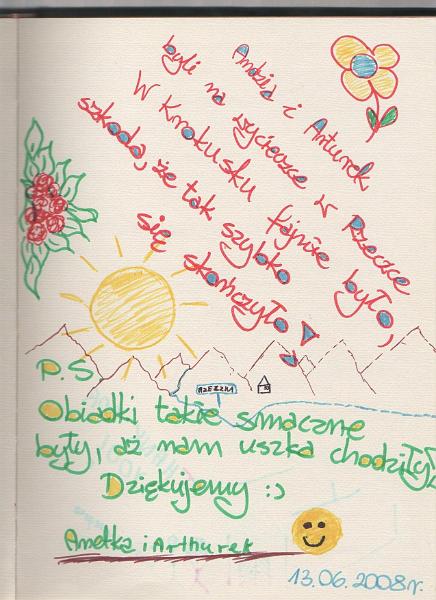 Andzia i Arturek
byli na wycieczce w Rzeczce
W Krokusku fajnie było,
szkoda, że tak szybko
się skończyło!
RZECZKA
P.S
Obiadki takie smaczne
były, aż nam uszka chodziły!
Dziękujemy :)
Anetka i Arthurek
13.06.2008r.